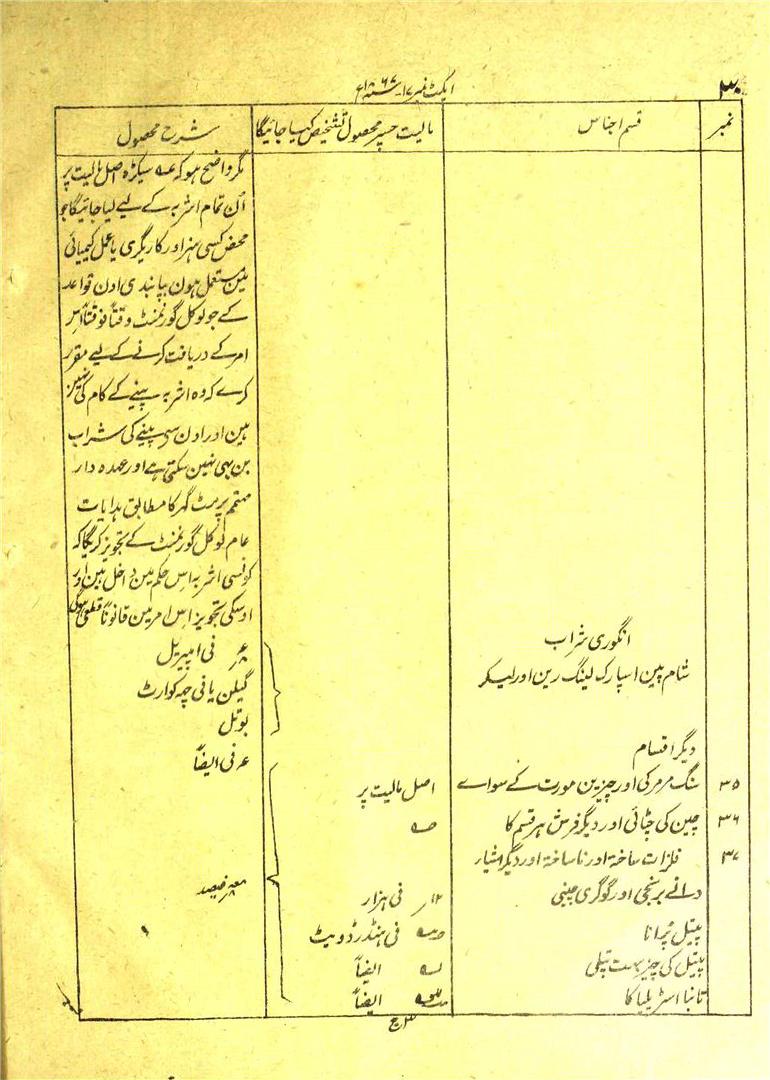 ۳۰
ایکٹ نمبر ۱۷ - سنہ ۱۸۶۷ع
نمبر قسم اجناس مالیت جسپر محصول تشخیص کیا جائیگا شرح محصول
مگر واضح ہو کہ سیکڑہ اصل مالیت پر
اُن تمام اشربہ کے لیے لیا جائیگا جو
محض کسی ہنر اور کاریگری یا عمل کیمیائی
مین مستعمل ہون بپابندی اون قواعد
کے جو لوکل گورنمنٹ وقتاً فوقتاً اس
امر کے دریافت کرنے کے لیے مقرر
کرے کہ وہ اشربہ پینے کے کام کی نہین
ہین اور اون سی پینے کی شراب
بن بہی نہین سکتی ہے اور عہدہ دار
مہتمم پرمٹ گہر کا مطابق ہدایات
عام لوکل گورنمنٹ کے تجویز کریگا کہ
کونسی اشربہ اس حکم مین داخل ہین اور
اوسکی تجویز اس امر مین قانوناً قطعی ہوگی
انگوری شراب
شام پین اسپارک لینگ رین اور لیکر فی امپیریل
گیلن یا فی چہ کوارٹ
بوتل
دیگر اقسام فی ایضاً
۳۵ سنگ مرمر کی اور چیزین مورت کے سواے اصل مالیت پر
۳۶ چین کی چٹائی اور دیگر فرش ہر قسم کا
۳۷ فلزات ساختہ اور ناساختہ اور دیگر اشیار
دانے برنجی اور گوگری چینی ۱۲ر فی ہزار فیصد
پیتل پرانا فی ہنڈرڈ ویٹ
پیتل کی چیز بہت پتلی ایضاً
تانبا اسٹریلیا کا ایضاً